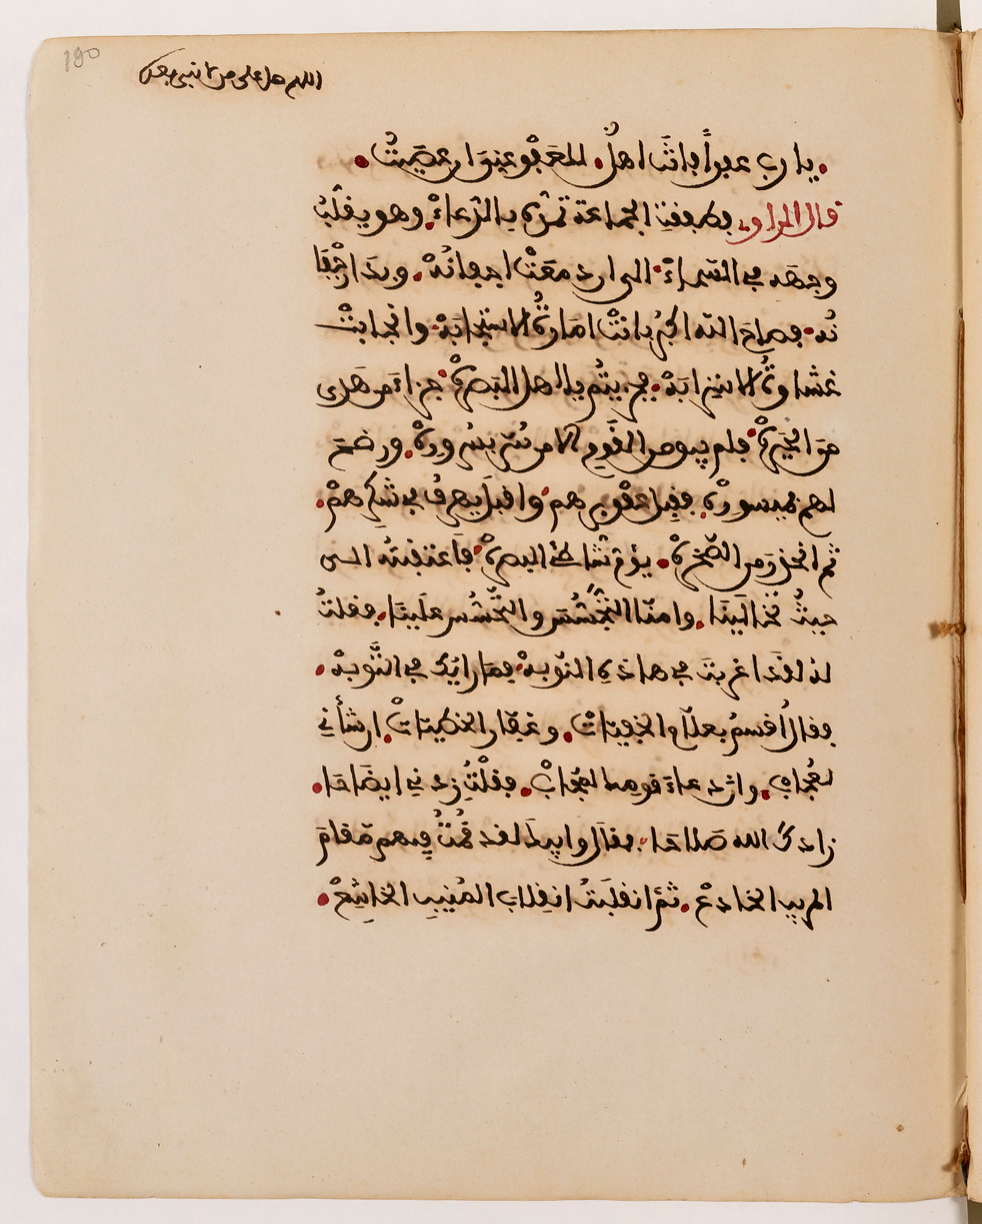 190
اللهم صل على من لا نبي بعده
يا رب عفوا فانت اهل. للعفو عني وان عصيت
قال الراوي فطفقت الجماعة تمده بالدعاء. وهو يقلب
وجهه في السماء. الى ان دمعت اجفانه. وبدا رجفا
نه. فصاح الله اكبر بانت امارة الاستجابة. وانجابت
غشاوة الاسترابة. فجزيتم يا اهل البصرة. جزاء من هدى
من الحيرة. فلم يبق من القوم الا من سر بسروره. ورضخ
لهم بميسوره. فقبل عفو برهم. واقبل يهرف في شكرهم.
ثم انحدر من الصخرة. يؤم شاطئ البصرة. فاعتقبته الى
حيث تخالينا. وامنا التجسس والتحسس علينا. فقلت
له لقد اغربت في هاذه النوبة. فما رايك في التوبة.
فقال اقسم بعلام الخفيات. وغفار الخطيات. ان شأني
لعجاب. وان دعاء قومك لمجاب. فقلت زدني ايضاحا.
زادك الله صلاحا. فقال وابيك لقد قمت فيهم مقام
المريب الخادع. ثم انقلبت انقلاب المنيب الخاشع.